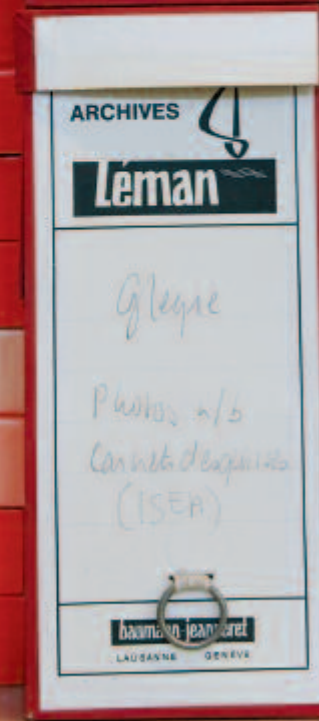 ARCHIVES
Léman
Gleyre
Photos n/b
Carnets d'esquisses
(ISEA)
baumann-jeanneret
LAUSANNE GENÈVE